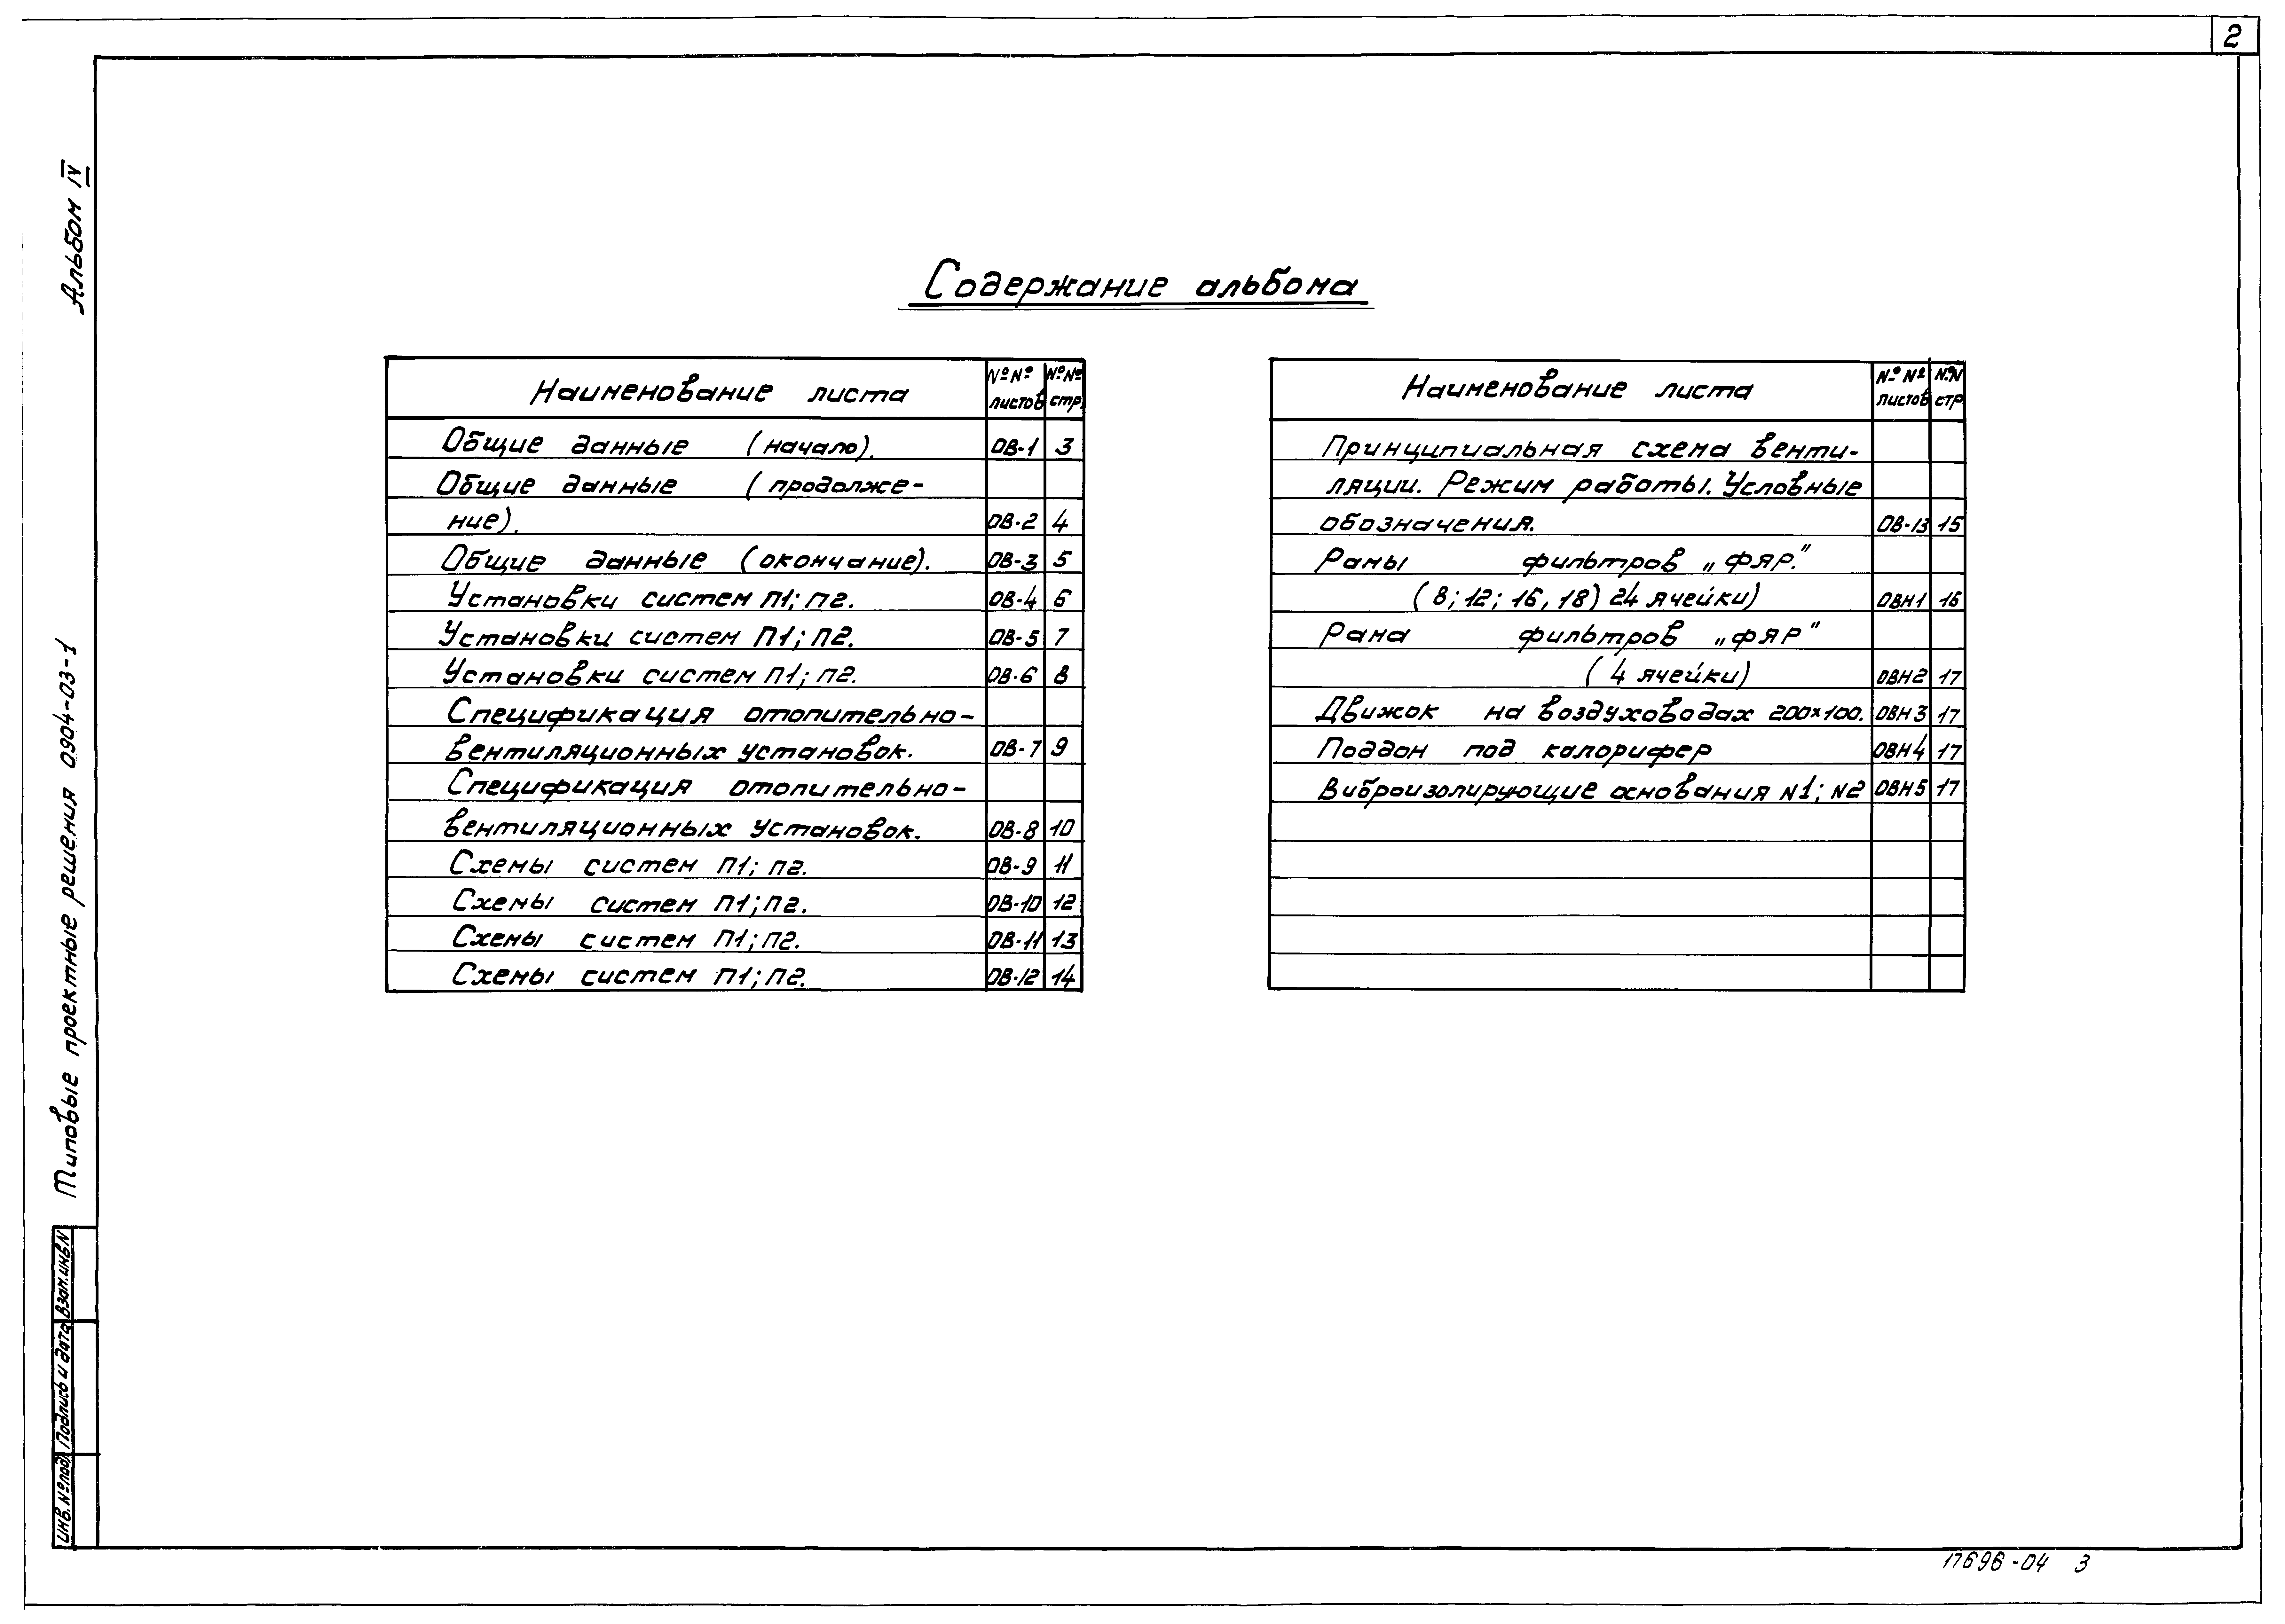 2
Альбом IV
Типовые проектные решения 0904-03-1
Содержание альбома
Наименование листа №№ листов №№ стр.
Общие данные (начало). ОВ-1 3
Общие данные (продолже-
ние). ОВ-2 4
Общие данные (окончание). ОВ-3 5
Установки систем П1; П2. ОВ-4 6
Установки систем П1; П2. ОВ-5 7
Установки систем П1; П2. ОВ-6 8
Спецификация отопительно-
вентиляционных установок. ОВ-7 9
Спецификация отопительно-
вентиляционных установок. ОВ-8 10
Схемы систем П1; П2. ОВ-9 11
Схемы систем П1; П2. ОВ-10 12
Схемы систем П1; П2. ОВ-11 13
Схемы систем П1; П2. ОВ-12 14
Наименование листа №№ листов №N стр
Принципиальная схема венти-
ляции. Режим работы. Условные
обозначения. ОВ-13 15
Рамы фильтров „ФЯР."
(8; 12; 16, 18) 24 ячейки) ОВН1 16
Рама фильтров „ФЯР"
(4 ячейки) ОВН2 17
Движок на воздуховодах 200×100. ОВН3 17
Поддон под калорифер ОВН4 17
Виброизолирующие основания N1; N2 ОВН5 17
Инв. № подл. Подпись и дата Взам. инв N
17696-04 3